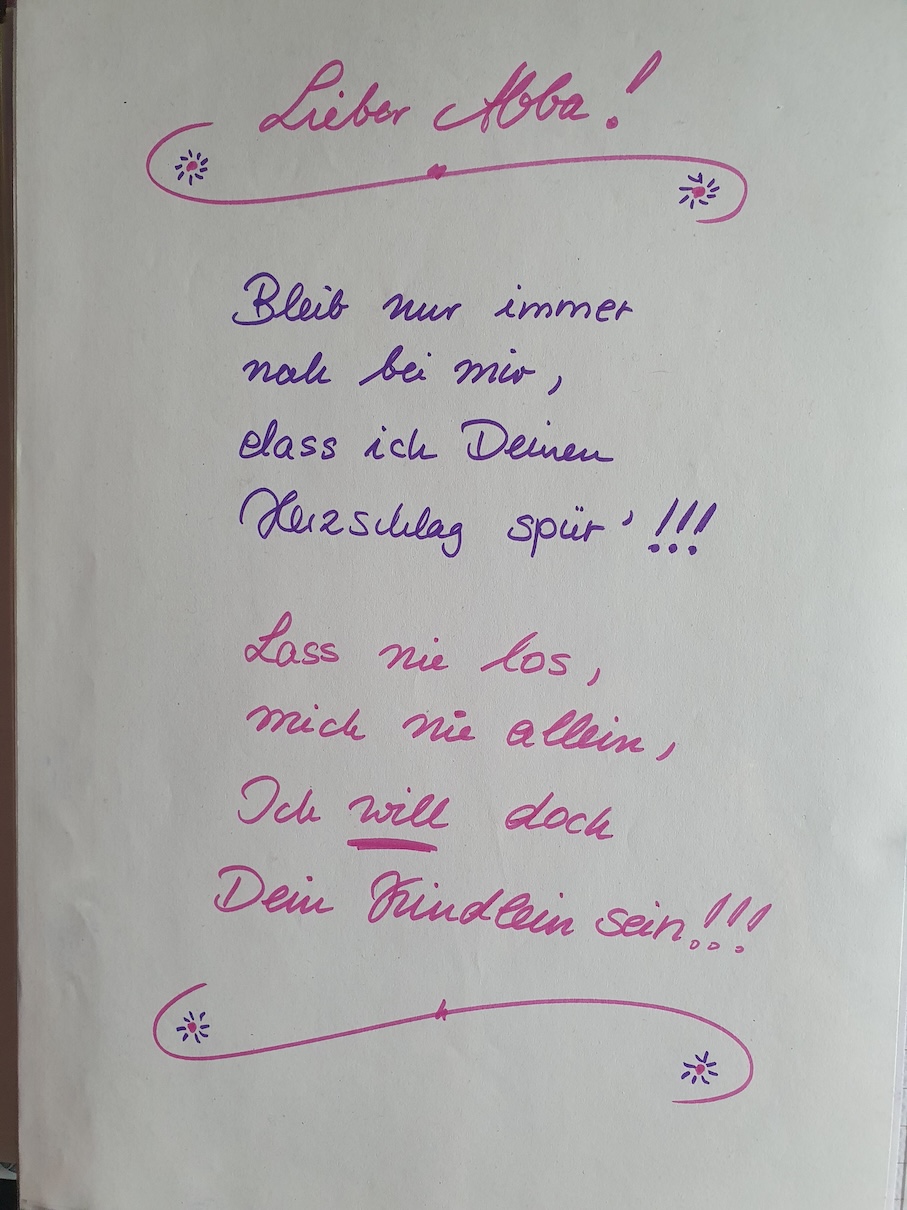 Lieber Abba!
Bleib nur immer
nah bei mir,
dass ich Deinen
Herzschlag spür'!!!
Lass nie los,
mich nie allein,
Ich will doch
Dein Kindlein sein!!!